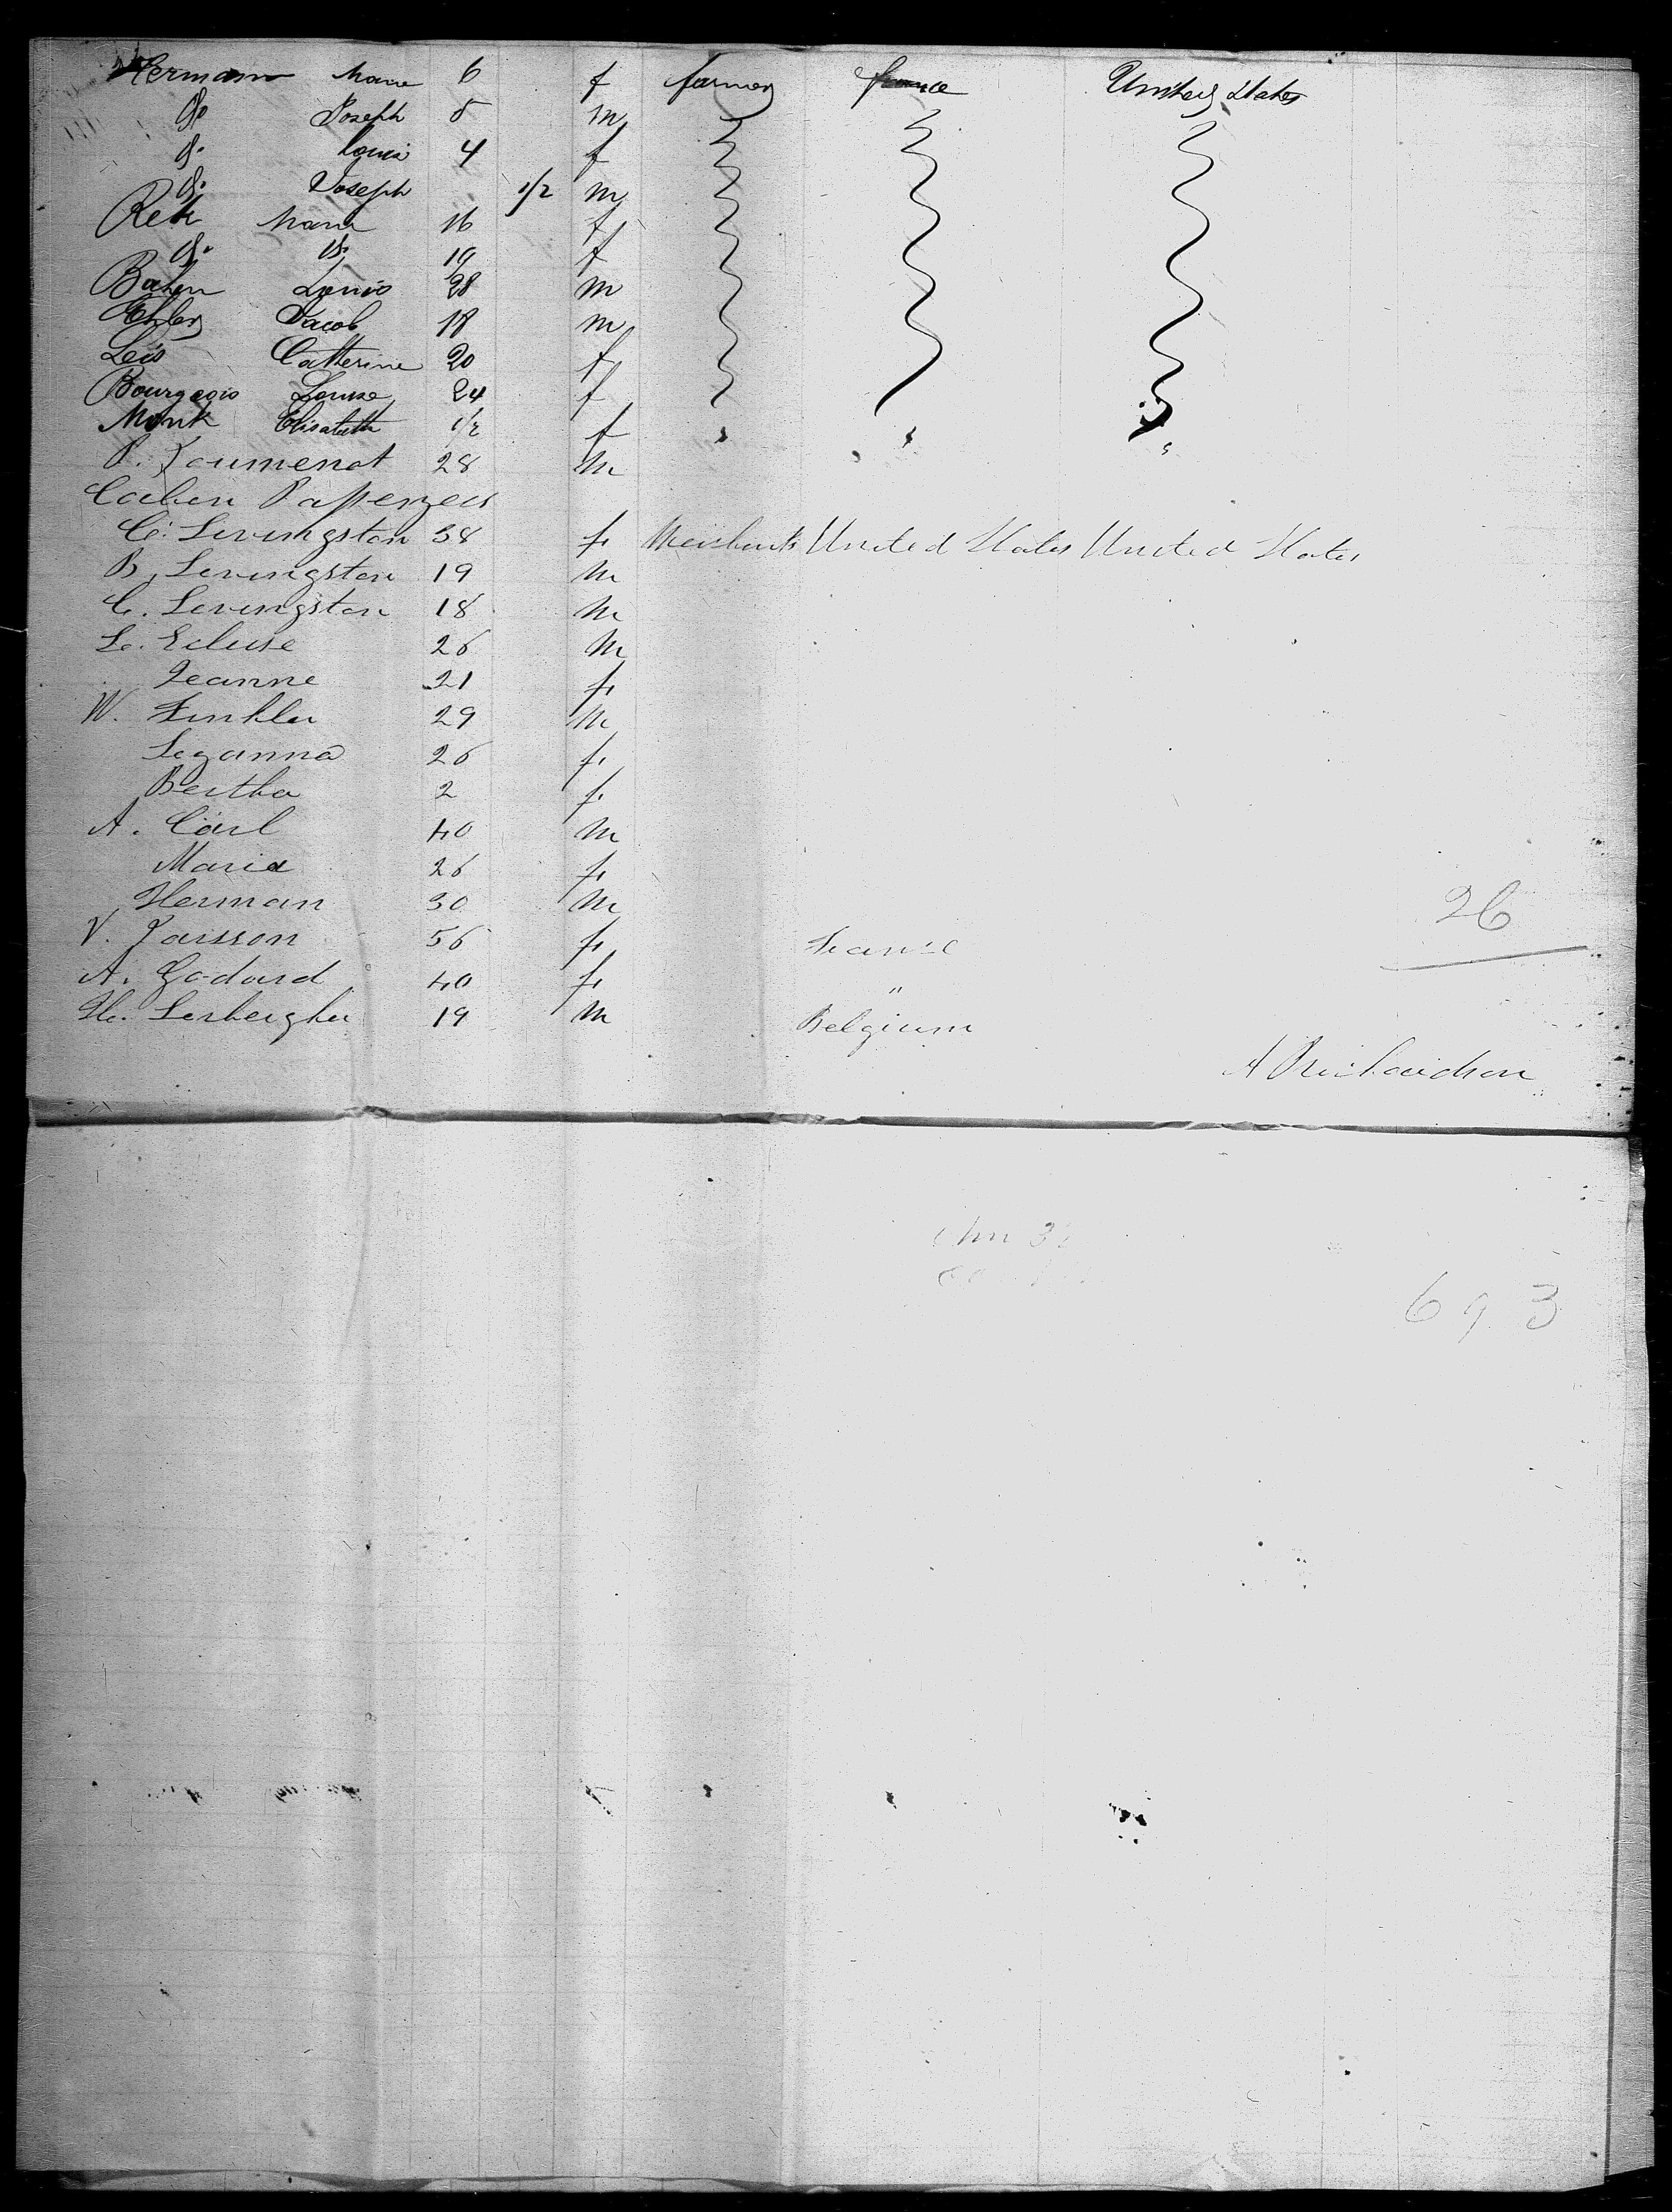 Hermann Marie 6 f farmer france United States
do Joseph 5 m
do Louis 4 f
do Joseph 1/2 m
Reti Marie 16 f
do do 19 f
Louis 28 m
Ehler Jacob 18 m
Leis Catherine 20 f
Bourgeois Louise 24 f
Monk Elisabeth 1/2 f " " "
P. Joumenot 28 m
Cabin Passengers
C. Livingston 38 f Merchants United States United States
B. Livingston 19 m
C. Livingston 18 m
L. Ecluse 26 m
Jeanne 21 f
W. Finkler 29 m
26 f
Bertha 2 f
A. Carl 40 m
Maria 26 f
Herman 30 m
26
V. Jaisson 56 f France
A. Godard 40 f "
19 m Belgium
A Richardson
693